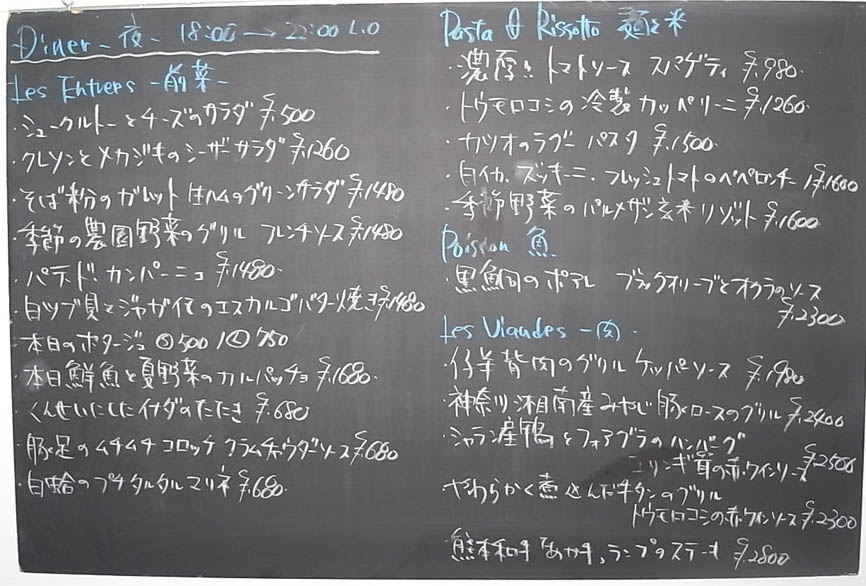 Diner - 夜 - 18:00 → 22:00 L.O
Les Entrers - 前菜 -
・シュークルートとチーズのサラダ ¥.500
・クレソンとメカジキのシーザサラダ ¥.1260
・そば粉のガレット 生ハムのグリーンサラダ ¥.1480
・季節の農園野菜のグリル フレンチソース ¥.1480
・パテ・ド・カンパーニュ ¥.1480
・白ツブ貝とジャガイモのエスカルゴバター焼き ¥.1480
・本日のポタージュ Ⓢ500 / Ⓛ750
・本日鮮魚と夏野菜のカルパッチョ ¥.1680
・くんせいにしたイナダのたたき ¥.680
・豚足のムチムチコロッケ クラムチャウダーソース ¥.680
・白蛤のプチタルタルマリネ ¥.680
Pasta & Rissotto 麺と米
・濃厚!! トマトソース スパゲティ ¥.980
・トウモロコシの冷製カッペリーニ ¥.1260
・カツオのラグー パスタ ¥.1500
・白イカ、ズッキーニ・フレッシュトマトのペペロンチーノ ¥.1600
・季節野菜のパルメザン玄米リゾット ¥.1600
Poission 魚
・黒鯛のポアレ ブラックオリーブとオクラのソース
¥.2300
Les Viandes - 肉 -
・仔羊背肉のグリル ケッパソース ¥.1980
・神奈川湘南産みやじ豚ロースのグリル ¥.2400
・シャラン産鴨とフォアグラのハンバーグ
エリンギ茸の赤ワインソース ¥2500
・やわらかく煮込んだ牛タンのグリル
トウモロコシの赤ワインソース ¥.2300
熊本和牛「あか牛」ランプのステーキ ¥.2800